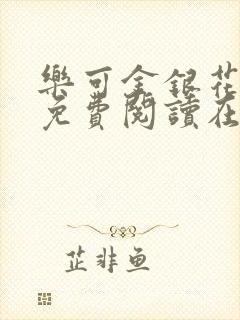 樂可金銀花
免費閱讀在
芷非魚